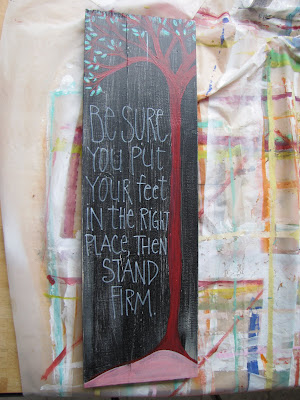 Be SURE,
YOU PUT
YOUR feet
IN the RIGHT
PLACE, THEN
STAND
FIRM.